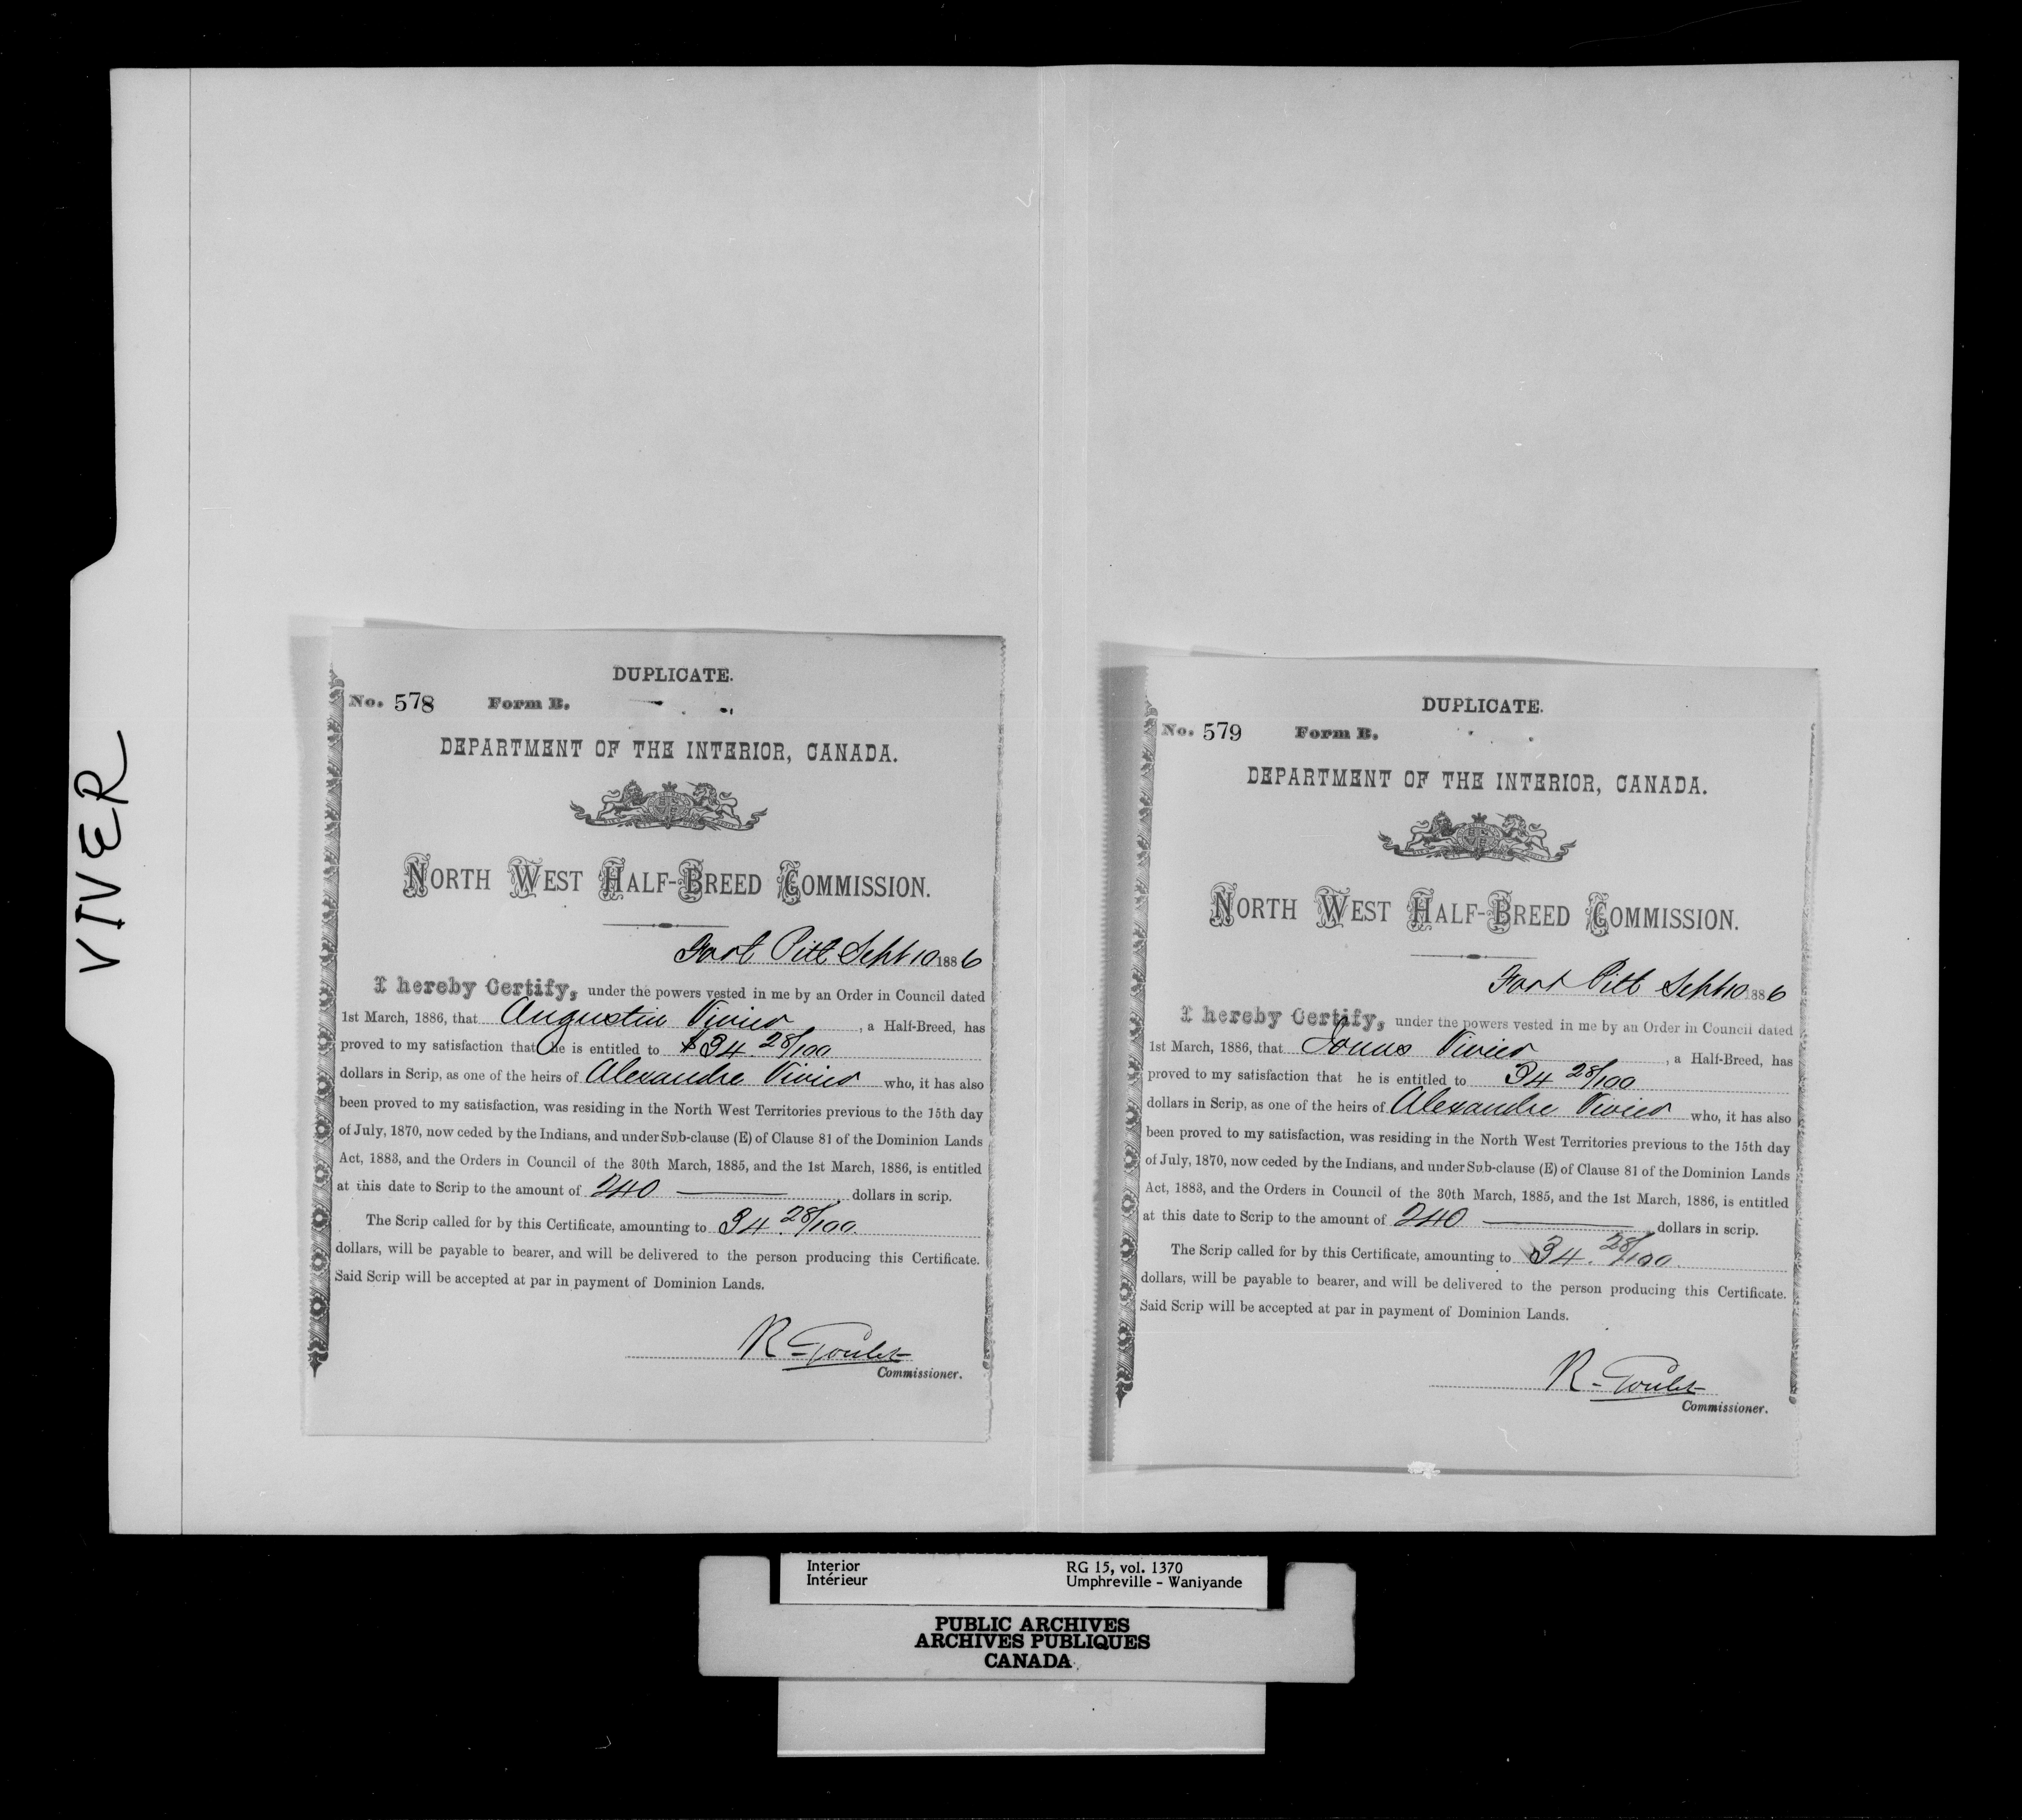 VIVER
DUPLICATE.
No. 578 Form B.
DEPARTMENT OF THE INTERIOR, CANADA.
NORTH WEST HALF-BREED COMMISSION.
Fort Pitt Sept 10 1886
I hereby Certify, under the powers vested in me by an Order in Council dated
1st March, 1886, that Augustin Vivier, a Half-Breed, has
proved to my satisfaction that he is entitled to $34.28/100
dollars in Scrip, as one of the heirs of Alexandre Vivier who, it has also
been proved to my satisfaction, was residing in the North West Territories previous to the 15th day
of July, 1870, now ceded by the Indians, and under Sub-clause (E) of Clause 81 of the Dominion Lands
Act, 1883, and the Orders in Council of the 30th March, 1885, and the 1st March, 1886, is entitled
at this date to Scrip to the amount of 240 dollars in scrip.
The Scrip called for by this Certificate, amounting to 34.28/100
dollars, will be payable to bearer, and will be delivered to the person producing this Certificate.
Said Scrip will be accepted at par in payment of Dominion Lands.
R. Goulet
Commissioner.
DUPLICATE.
No. 579 Form B.
DEPARTMENT OF THE INTERIOR, CANADA.
NORTH WEST HALF-BREED COMMISSION.
Fort Pitt Sept 10 1886
I hereby Certify, under the powers vested in me by an Order in Council dated
1st March, 1886, that Vivier, a Half-Breed, has
proved to my satisfaction that he is entitled to 34 28/100
dollars in Scrip, as one of the heirs of Alexandre Vivier who, it has also
been proved to my satisfaction, was residing in the North West Territories previous to the 15th day
of July, 1870, now ceded by the Indians, and under Sub-clause (E) of Clause 81 of the Dominion Lands
Act, 1883, and the Orders in Council of the 30th March, 1885, and the 1st March, 1886, is entitled
at this date to Scrip to the amount of 240 dollars in scrip.
The Scrip called for by this Certificate, amounting to 34.28/100.
dollars, will be payable to bearer, and will be delivered to the person producing this Certificate.
Said Scrip will be accepted at par in payment of Dominion Lands.
R. Goulet
Commissioner.
Interior RG 15, vol. 1370
Intérieur Umphreville - Waniyande
PUBLIC ARCHIVES
ARCHIVES PUBLIQUES
CANADA